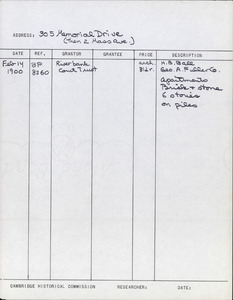 ADDRESS: 305 Memorial Drive
(Then 2 Mass Ave.)
DATE REF. GRANTOR GRANTEE PRICE DESCRIPTION
Feb 14 BP Riverbank arch H.B. Ball
1900 8260 Court Trust Bldr. Geo. A. Fuller Co.
Apartments
Brick + stone
6 stories
on piles
CAMBRIDGE HISTORICAL COMMISSION RESEARCHER: DATE: